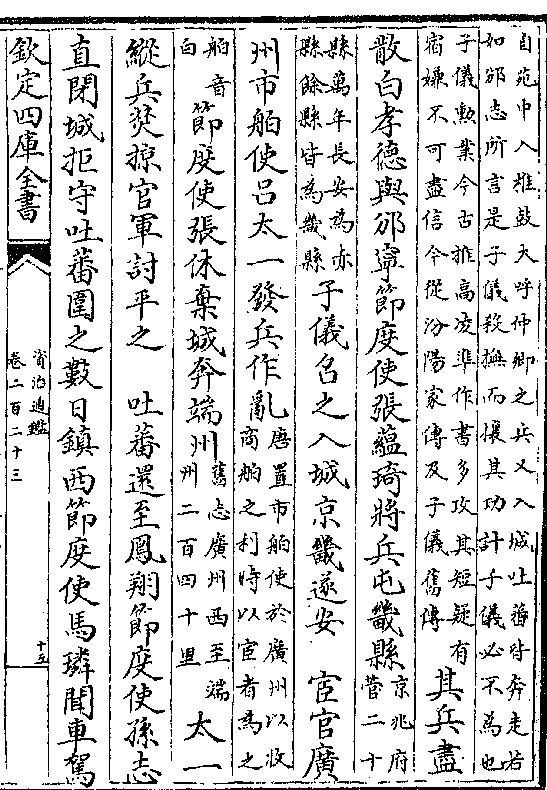 自苑中入椎鼓大呼仲卿之兵又入城吐蕃皆奔走若
如邠志所言是子儀殺撫而攘其功計子儀必不為也
子儀勲業今古推高凌準作書多攻其短疑有
宿嫌不可盡信今從汾陽家傳及子儀舊傳
其兵盡
散白孝德與邠寧節度使張藴琦將兵屯畿縣
京兆府
管二十
縣萬年長安為赤
縣餘縣皆為畿縣
子儀召之入城京畿遂安 宦官廣
州市舶使吕太一發兵作亂
唐置市舶使於廣州以收
商舶之利時以宦者為之
舶音
白
節度使張休棄城奔端州
舊志廣州西至端
州二百四十里
太一
縱兵焚掠官軍討平之 吐蕃還至鳳翔節度使孫志
直閉城拒守吐蕃圍之數日鎮西節度使馬璘聞車駕
欽定四庫全書
資治通鑑
卷二百二十三
十五